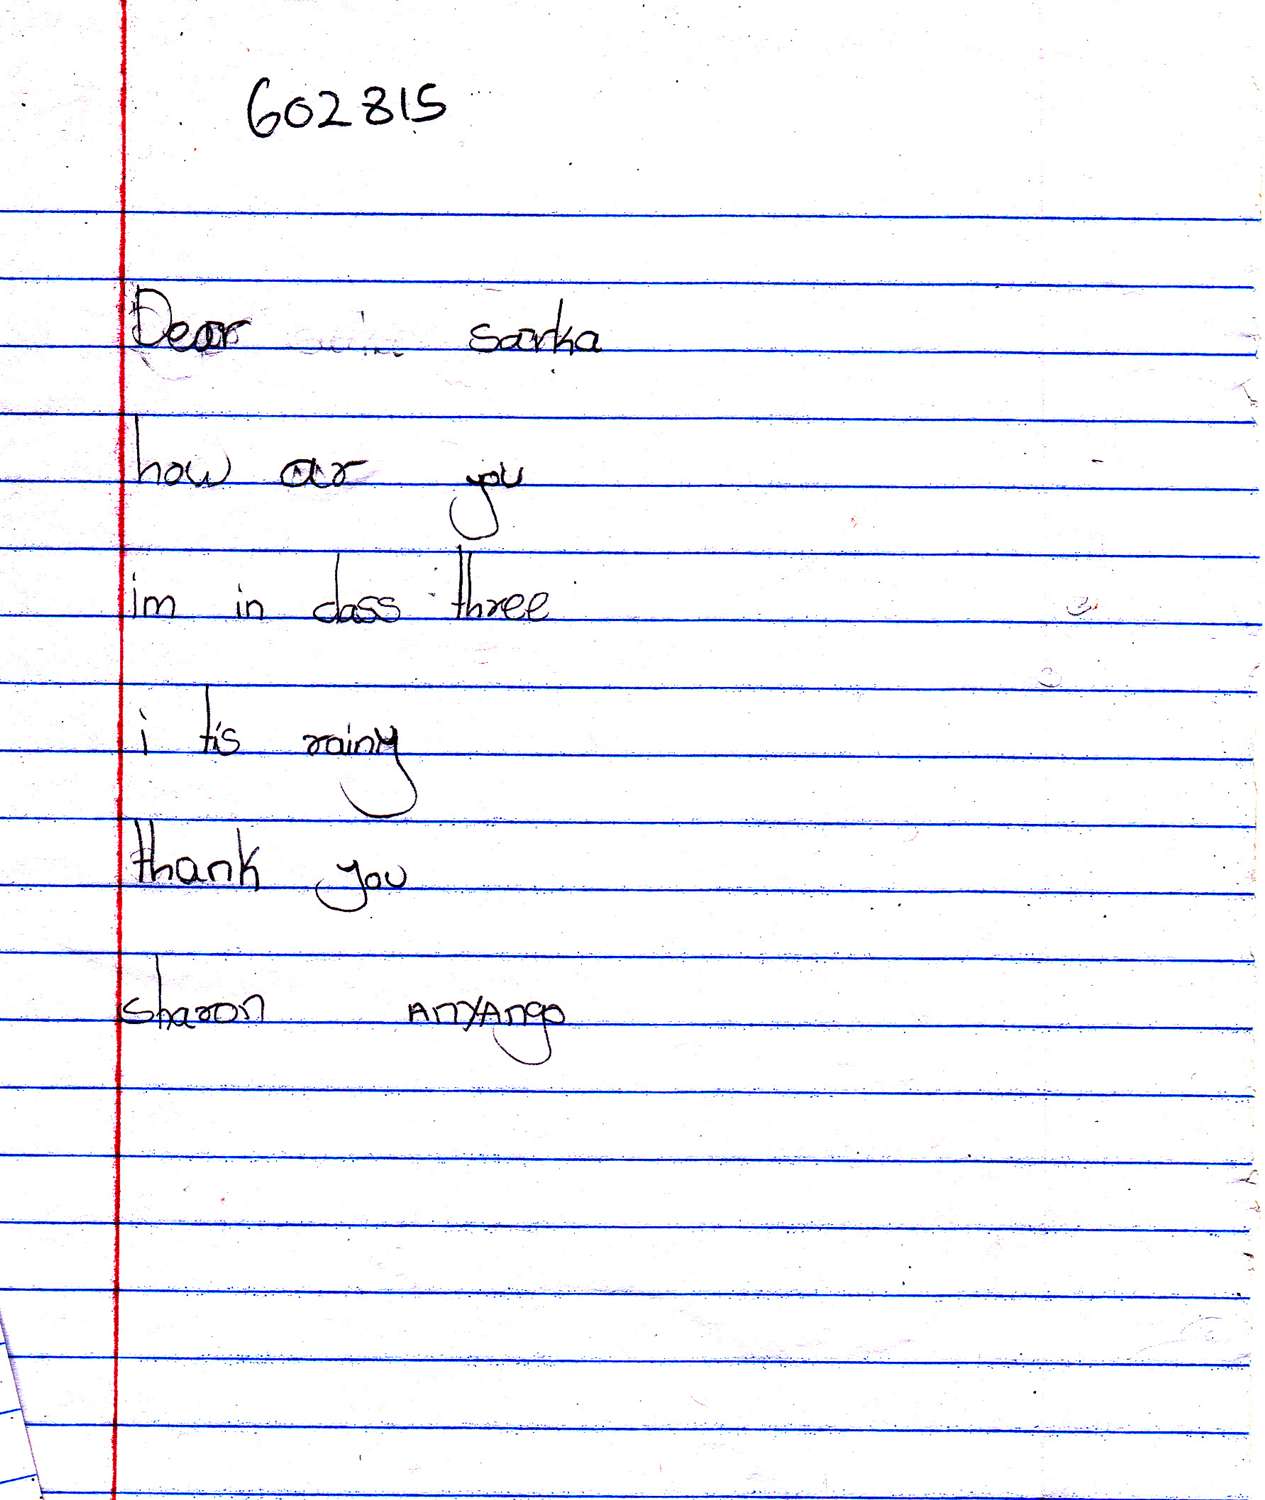 602815
Dear sarka
how ar you
im in class three
i tis rainy
thank you
sharon AnyAngo